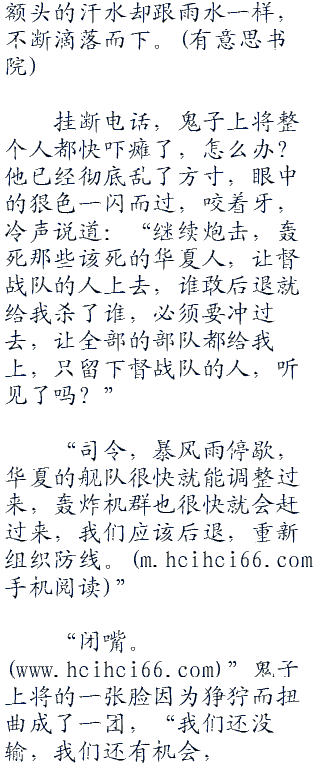 额头的汗水却跟雨水一样，
不断滴落而下。(有意思书
院)
挂断电话，鬼子上将整
个人都快吓瘫了，怎么办？
他已经彻底乱了方寸，眼中
的狠色一闪而过，咬着牙，
冷声说道：“继续炮击，轰
死那些该死的华夏人，让督
战队的人上去，谁敢后退就
给我杀了谁，必须要冲过
去，让全部的部队都给我
上，只留下督战队的人，听
见了吗？”
“司令，暴风雨停歇，
华夏的舰队很快就能调整过
来，轰炸机群也很快就会赶
过来，我们应该后退，重新
组织防线。(m.hcihci66.com
手机阅读)”
“闭嘴。
(www.hcihci66.com)”鬼子
上将的一张脸因为狰狞而扭
曲成了一团，“我们还没
输，我们还有机会，